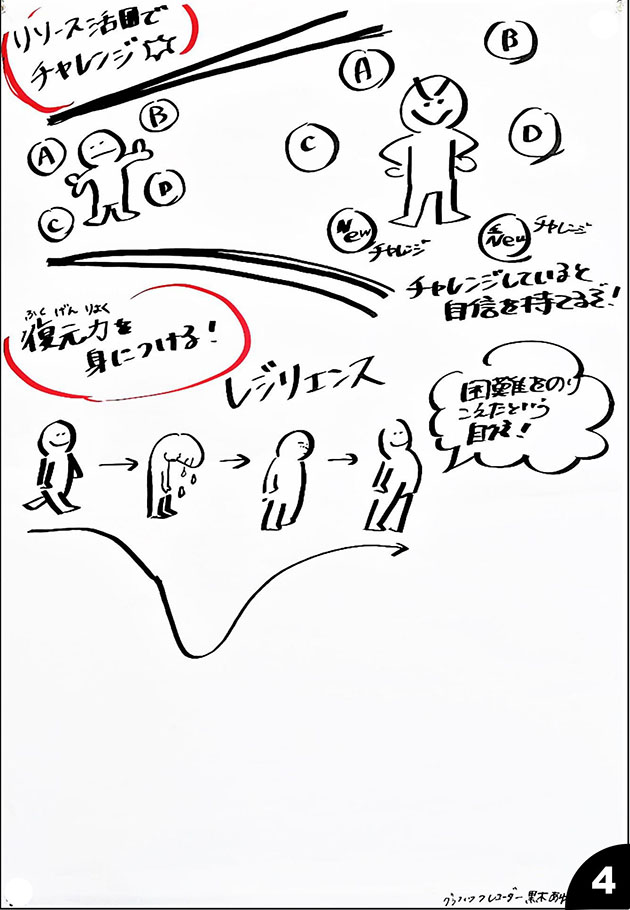 リソース活用で
チャレンジ☆
A
B
C
D
A
B
C
D
New
チャレンジ
New
チャレンジ
チャレンジしていると
自信を持てるぞ!
ふくげんりょく
復元力を
身につける!
レジリエンス
困難をのり
こえたという
自信!
グラフィックレコーダー 黒木あゆ
4